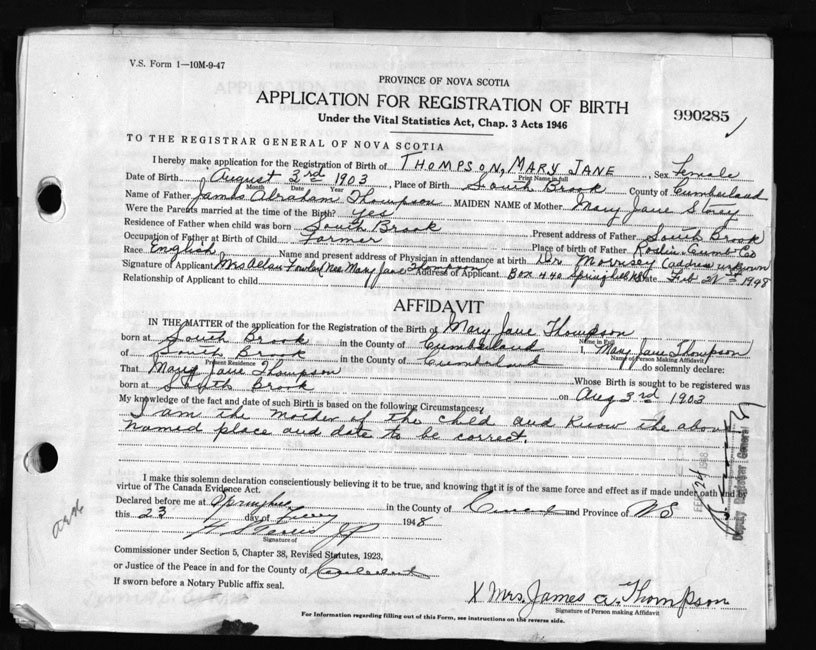 V.S. Form 1—10M-9-47
PROVINCE OF NOVA SCOTIA
APPLICATION FOR REGISTRATION OF BIRTH
990285
Under the Vital Statistics Act, Chap. 3 Acts 1946
TO THE REGISTRAR GENERAL OF NOVA SCOTIA
I hereby make application for the Registration of Birth of THOMPSON, MARY JANE, Sex Female
Print Name in full
Date of Birth August 3rd 1903, Place of Birth South Brook County of Cumberland
Month Date Year
Name of Father James Abraham Thompson MAIDEN NAME of Mother Mary Jane Storey
Were the Parents married at the time of the Birth? Yes
Residence of Father when child was born South Brook Present address of Father South Brook
Occupation of Father at Birth of Child Farmer Place of birth of Father Roslin Cumb Co
Race English Name and present address of Physician in attendance at birth Dr Morrisey (address unknown
Signature of Applicant Mrs Allan Fowler Nee Mary Jane Thompson Address of Applicant Box 440 Springhill NS Date Feb 1948
Relationship of Applicant to child
AFFIDAVIT
IN THE MATTER of the application for the Registration of the Birth of Mary Jane Thompson
Name in Full
born at South Brook in the County of Cumberland I, Mary Jane Thompson
Name of Person Making Affidavit
of South Brook in the County of Cumberland do solemnly declare:
Present Residence
That Mary Jane Thompson Whose Birth is sought to be registered was
born at South Brook on Aug 3rd 1903
My knowledge of the fact and date of such Birth is based on the following Circumstances:
I am the mother of the child and know the above
named place and date to be correct.
I make this solemn declaration conscientiously believing it to be true, and knowing that it is of the same force and effect as if made under oath and by
virtue of The Canada Evidence Act.
Declared before me at Springhill in the County of and Province of NS
this 23 day of 1948
Signature of
Commissioner under Section 5, Chapter 38, Revised Statutes, 1923,
or Justice of the Peace in and for the County of
If sworn before a Notary Public affix seal.
X Mrs. James A. Thompson
Signature of Person making Affidavit
For Information regarding filling out of this Form, see instructions on the reverse side.
FEB 24 1948
Deputy Registrar General